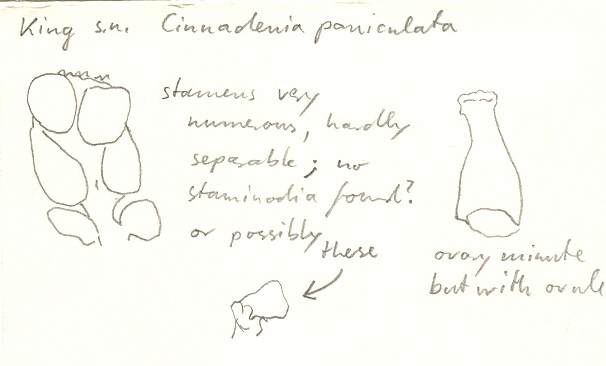 King s.n. Cinnadenia paniculata
stamens very
numerous, hardly
separable; no
staminodia found?
or possibly
these
ovary minute
but with ovule